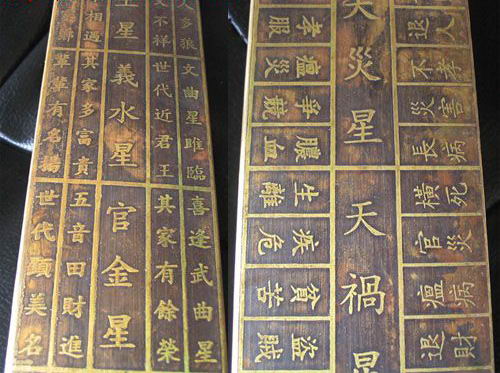 人多狼
文曲星雎臨
喜逢武曲星
文不祥
世代近君王
其家有餘榮
土星
義水星
官金星
相遇
其家多富貴
五音田財進
鄉
輩輩有名揚
世代顯美名
退人
不孝
災害
長病
橫死
官災
瘟病
退財
天災星
天禍星
孝服
瘟災
爭競
膿血
生離
疾危
貧苦
盜賊